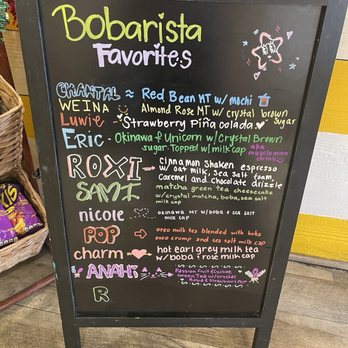 Bobarista
Favorites
CHANTAL ≈ Red Bean MT w/ mochi
WEINA Almond Rose MT w/ crystal brown sugar
Luwie - Strawberry Piña colada
Eric - Okinawa & Unicorn w/ Crystal Brown
sugar Topped w/ milk cap
aka
drink
ROXI → Cinnamon Shaken espresso
w/ oat milk, Sea salt foam,
Caramel and Chocolate drizzle
SAMI matcha green tea cheesecake
w/ crystal matcha, boba, sea salt
milk cap
nicole okinawa MT w/ boba & sea salt
milk cap
POP → oreo milk tea blended with boba
oreo crump and sea salt milk cap
charm hot earl grey milk tea
w/ boba & rose milk cap
ANAHI Passion Fruit
Green Tea w/ crystal
Boba &
R